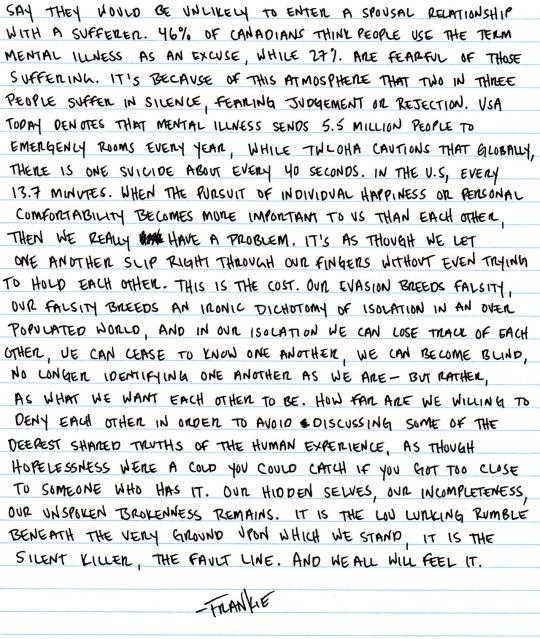 SAY THEY WOULD BE UNLIKELY TO ENTER A SPOUSAL RELATIONSHIP
WITH A SUFFERER. 46% OF CANADIANS THINK PEOPLE USE THE TERM
MENTAL ILLNESS AS AN EXCUSE, WHILE 27% ARE FEARFUL OF THOSE
SUFFERING. IT'S BECAUSE OF THIS ATMOSPHERE THAT TWO IN THREE
PEOPLE SUFFER IN SILENCE, FEARING JUDGEMENT OR REJECTION. USA
TODAY DENOTES THAT MENTAL ILLNESS SENDS 5.5 MILLION PEOPLE TO
EMERGENCY ROOMS EVERY YEAR, WHILE TWLOHA CAUTIONS THAT GLOBALLY,
THERE IS ONE SUICIDE ABOUT EVERY 40 SECONDS. IN THE U.S, EVERY
13.7 MINUTES. WHEN THE PURSUIT OF INDIVIDUAL HAPPINESS OR PERSONAL
COMFORTABILITY BECOMES MORE IMPORTANT TO US THAN EACH OTHER,
THEN WE REALLY HAVE A PROBLEM. IT'S AS THOUGH WE LET
ONE ANOTHER SLIP RIGHT THROUGH OUR FINGERS WITHOUT EVEN TRYING
TO HOLD EACH OTHER. THIS IS THE COST. OUR EVASION BREEDS FALSITY,
OUR FALSITY BREEDS AN IRONIC DICHOTOMY OF ISOLATION IN AN OVER
POPULATED WORLD, AND IN OUR ISOLATION WE CAN LOSE TRACK OF EACH
OTHER, WE CAN CEASE TO KNOW ONE ANOTHER, WE CAN BECOME BLIND,
NO LONGER IDENTIFYING ONE ANOTHER AS WE ARE— BUT RATHER,
AS WHAT WE WANT EACH OTHER TO BE. HOW FAR ARE WE WILLING TO
DENY EACH OTHER IN ORDER TO AVOID DISCUSSING SOME OF THE
DEEPEST SHARED TRUTHS OF THE HUMAN EXPERIENCE, AS THOUGH
HOPELESSNESS WERE A COLD YOU COULD CATCH IF YOU GOT TOO CLOSE
TO SOMEONE WHO HAS IT. OUR HIDDEN SELVES, OUR INCOMPLETENESS,
OUR UNSPOKEN BROKENNESS REMAINS. IT IS THE LOW LURKING RUMBLE
BENEATH THE VERY GROUND UPON WHICH WE STAND, IT IS THE
SILENT KILLER, THE FAULT LINE. AND WE ALL WILL FEEL IT.
—FRANKIE